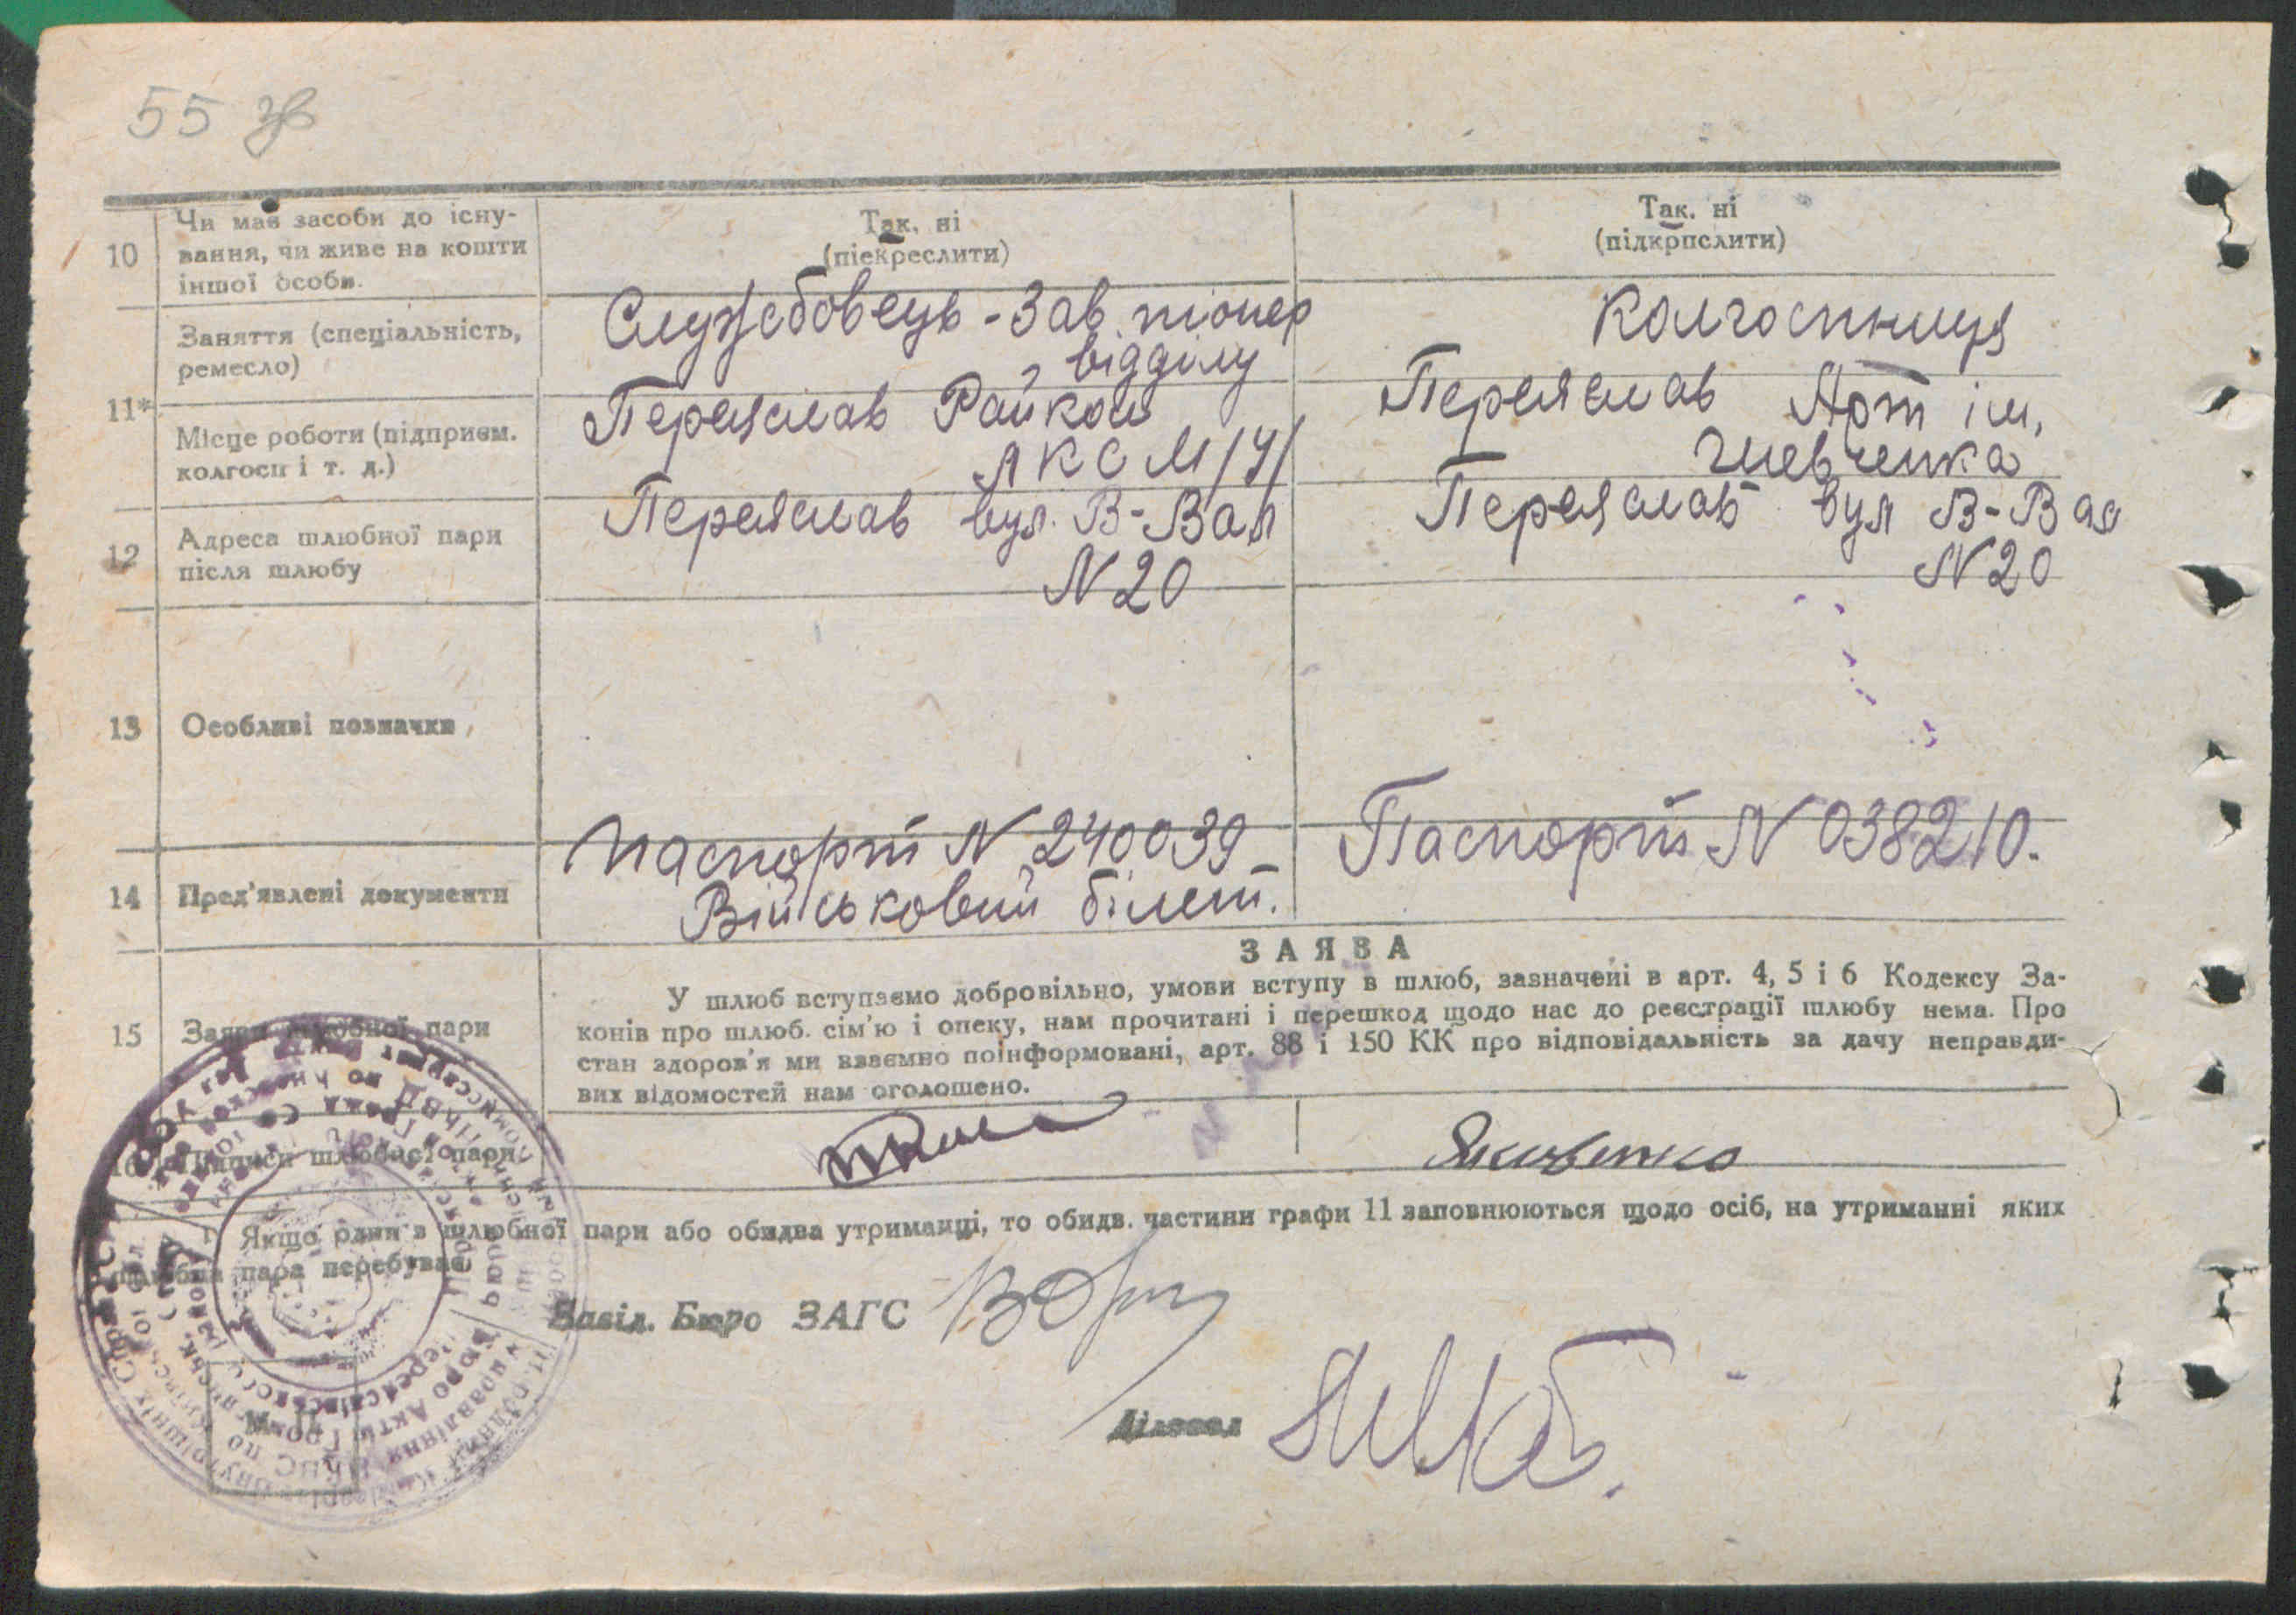 55 зв
10
Чи має засоби до існу-
вання, чи живе на кошти
іншої особи.
Так, ні
(піекреслити)
Так, ні
(підкрпслити)
11*
Заняття (спеціальність,
ремесло)
Службовець - Зав. піонер
відділу
Колгоспниця
Місце роботи (підприєм.
колгосп і т. д.)
Переяслав Райком
ЛКСМ/У/
Переяслав Арт ім.
Шевченка
12
Адреса шлюбної пари
після шлюбу
Переяслав вул. В-Вал
N 20
Переяслав вул В-Вал
N 20
13
Особливі позначки
14
Пред'явлені документи
Паспорт N 240039
Військовий білет.
Паспорт N 038210.
15
Заяви шлюбної пари
ЗАЯВА
У шлюб вступаємо добровільно, умови вступу в шлюб, зазначені в арт. 4, 5 і 6 Кодексу За-
конів про шлюб. сім'ю і опеку, нам прочитані і перешкод щодо нас до реєстрації шлюбу нема. Про
стан здоров'я ми взаємно поінформовані, арт. 88 і 150 КК про відповідальність за дачу неправди-
вих відомостей нам оголошено.
16
Підписи шлюбної пари
Яковенко
Якщо один з шлюбної пари або обидва утриманці, то обидв. частини графи 11 заповнюються щодо осіб, на утриманні яких
шлюбна пара перебуває
Завід. Бюро ЗАГС
Діловод
М. П.